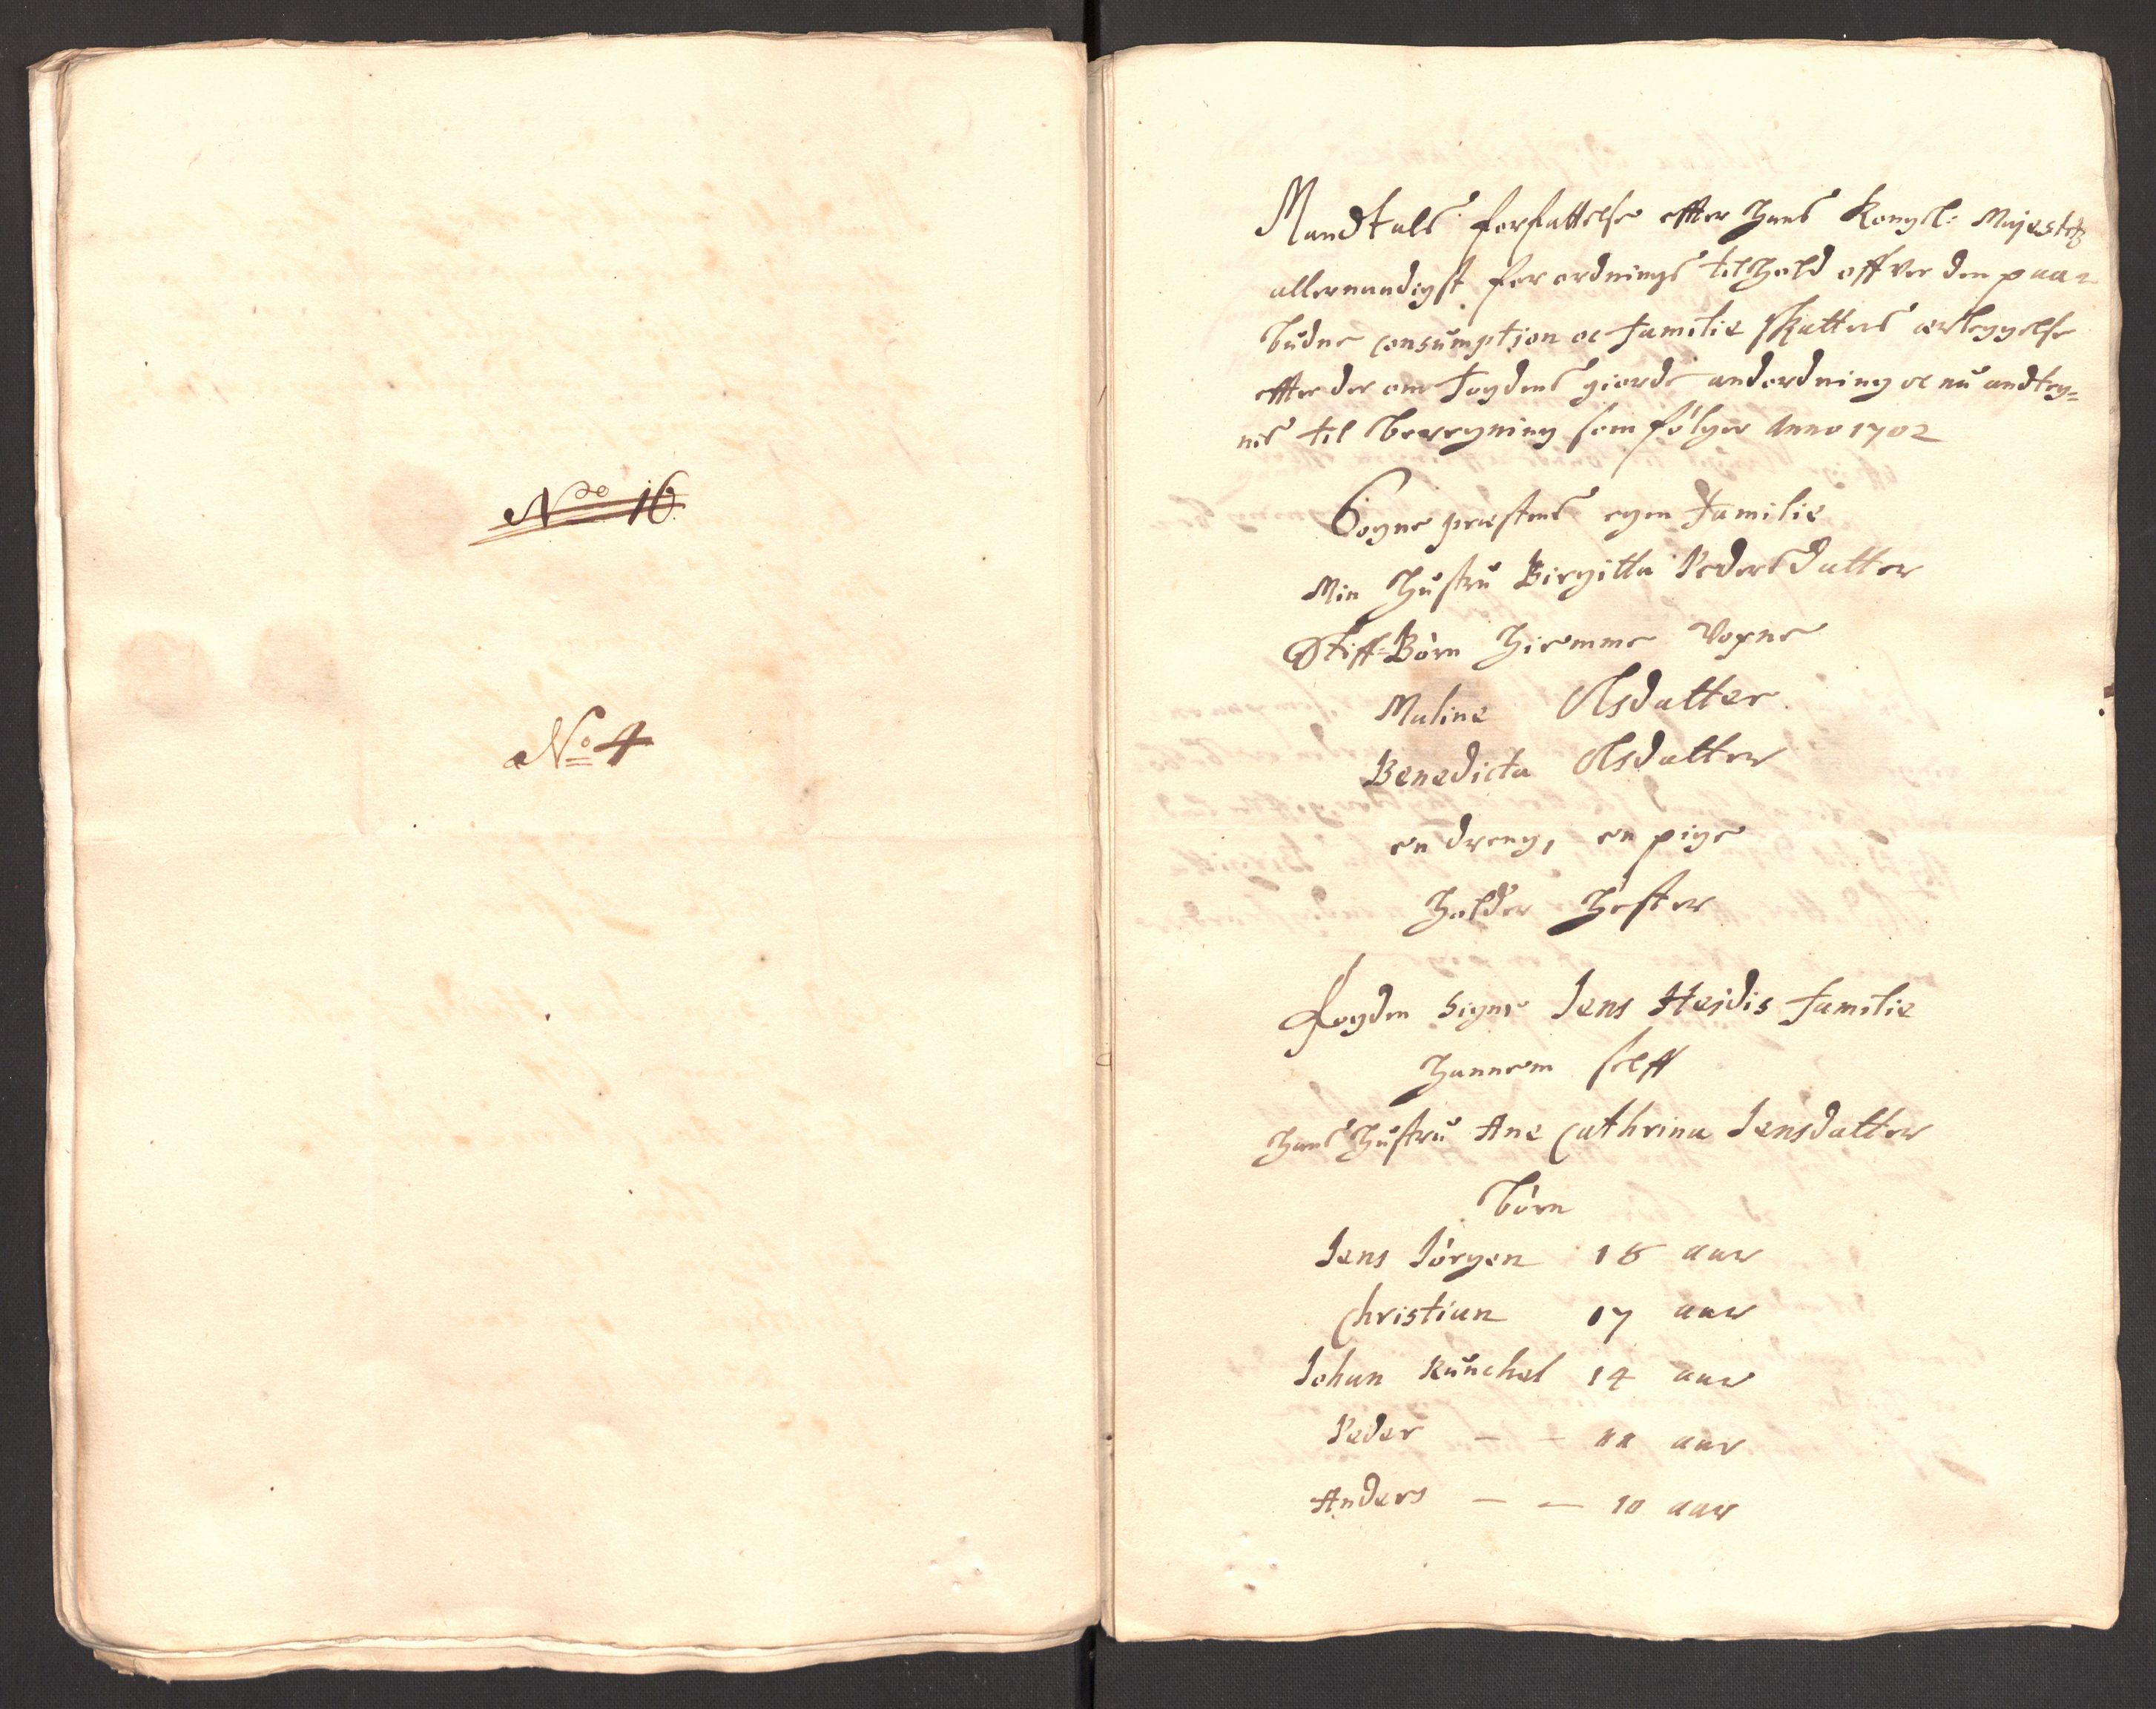 No 16
No 4
Mandtals forfattelse effter Hans Kongl: Majestetz
allernaadigst forordnings tilhold offver den paa=
budne consumption oc Familie skattens erleggelse
effter der om Fogdens giorde andordning oc nu andteg=
nes til beregning som følger Anno 1702
Sogne præstens egen Familie
Min Hustru Birgitta Peders Datter
Stiff=Børn hiemme Voxne
Maline Olsdatter
Benedicta Olsdatter
en dreng, en pige
Holder Hester
Fogden Signr Jens Hejdis Familie
Hannem selff
Hans Hustru Ane Cathrina Jensdatter
Børn
Jens Jørgen 18 aar
Christian 17 aar
Johan Kunchel 14 aar
Peder — — 11 aar
Anders — — 10 aar